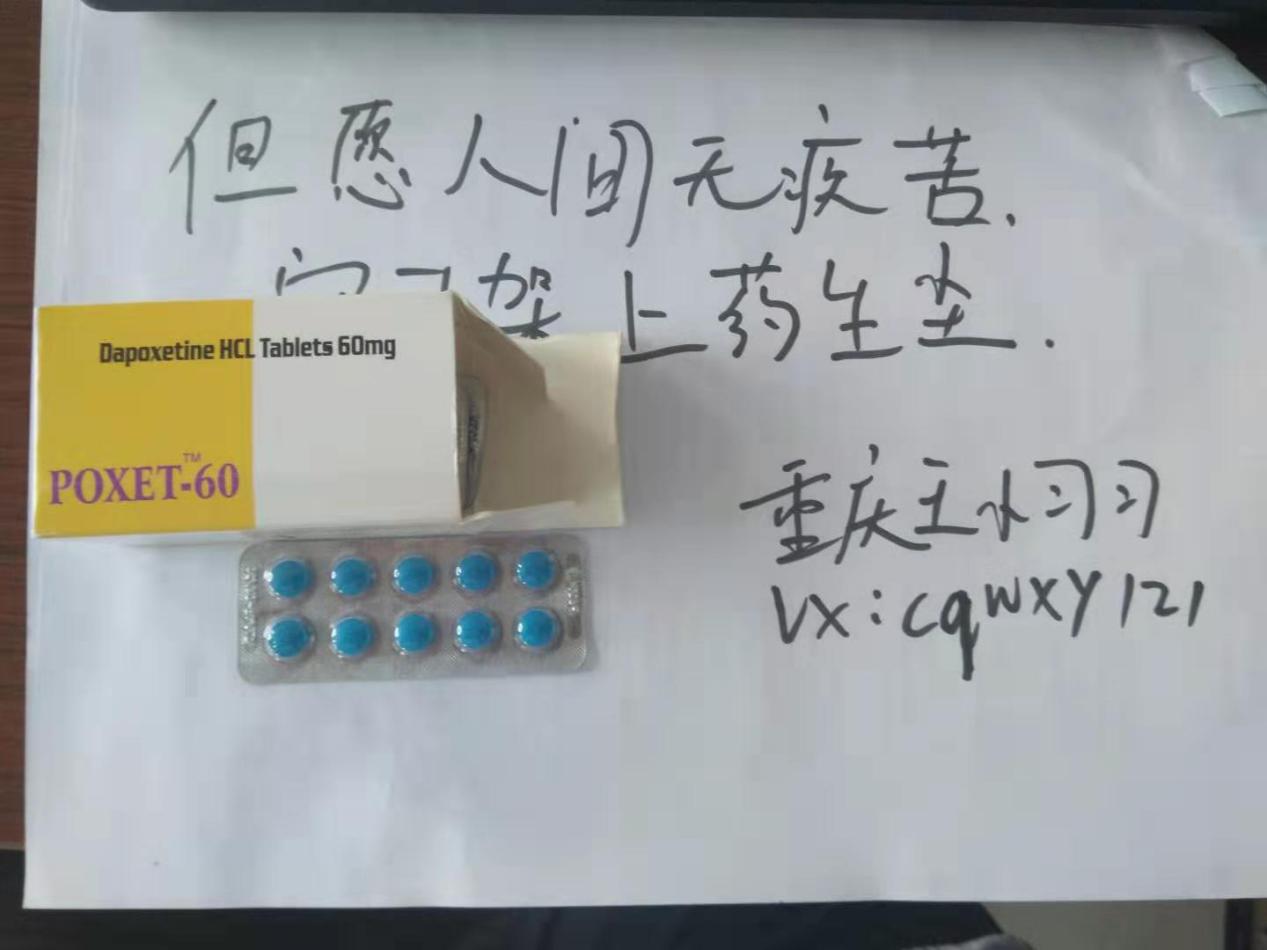 但愿人间无疾苦.
架上药生尘.
Dapoxetine HCL Tablets 60mg
POXET™-60
重庆王小羽
VX:cqwxy121